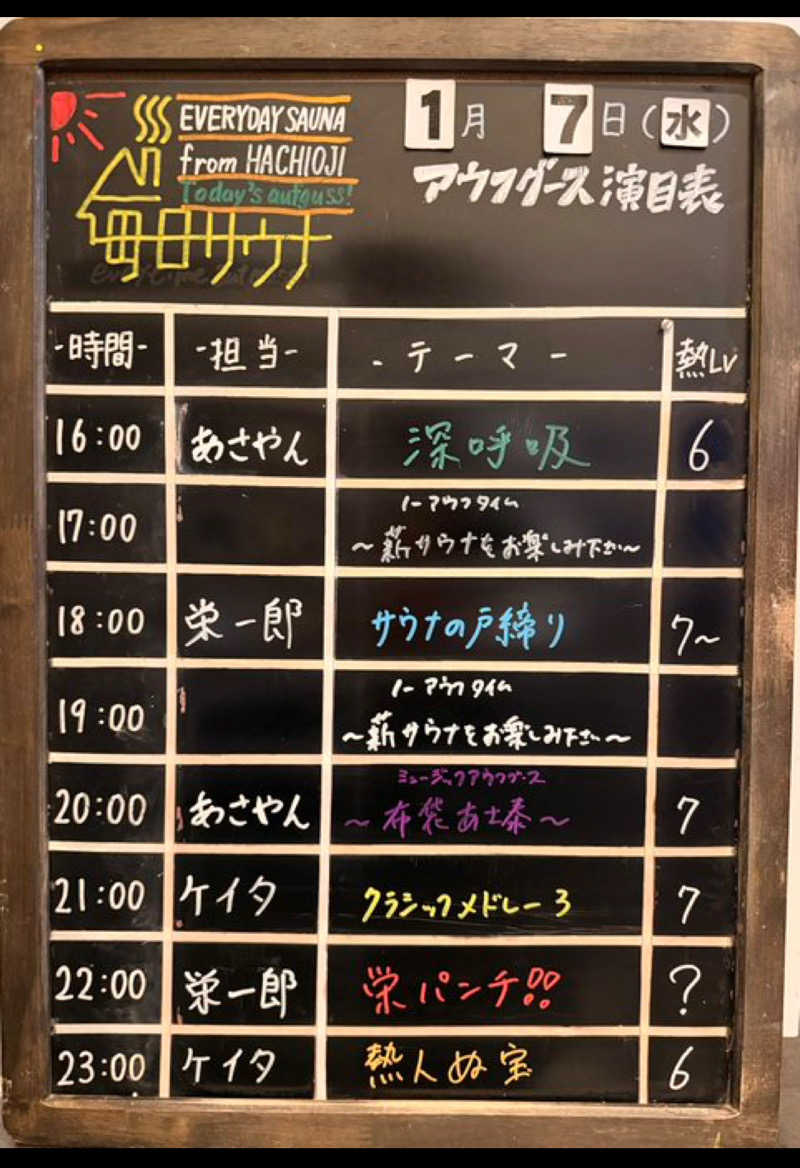 EVERYDAY SAUNA
from HACHIOJI
Today's aufguss!
毎日サウナ
1月 7日(水)
アウフグース演目表
-時間- -担当- -テーマー 熱LV
16:00 あさやん 深呼吸 6
17:00 ノーアウフタイム
〜薪サウナをお楽しみ下さい〜
18:00 栄一郎 サウナの戸締り 7〜
19:00 ノーアウフタイム
〜薪サウナをお楽しみ下さい〜
20:00 あさやん ミュージックアウフグース
〜布袋あさ泰〜 7
21:00 ケイタ クラシックメドレー3 7
22:00 栄一郎 栄パンチ!! ?
23:00 ケイタ 熱人ぬ宝 6